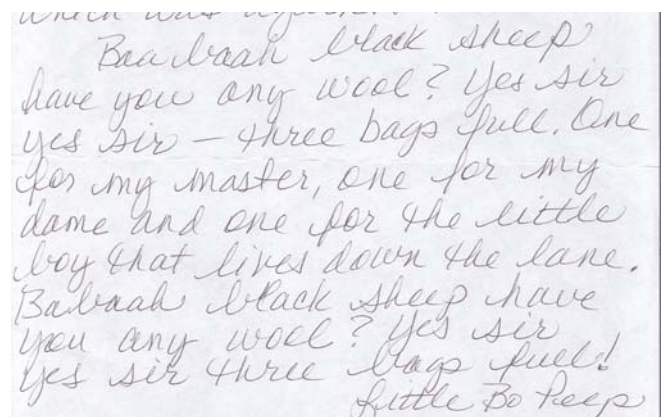 which was
Baa baah black sheep
have you any wool? Yes sir
yes sir – three bags full. One
for my master, one for my
dame and one for the little
boy that lives down the lane.
Babaah black sheep have
you any wool? Yes sir
yes sir three bags full!
Little Bo Peep